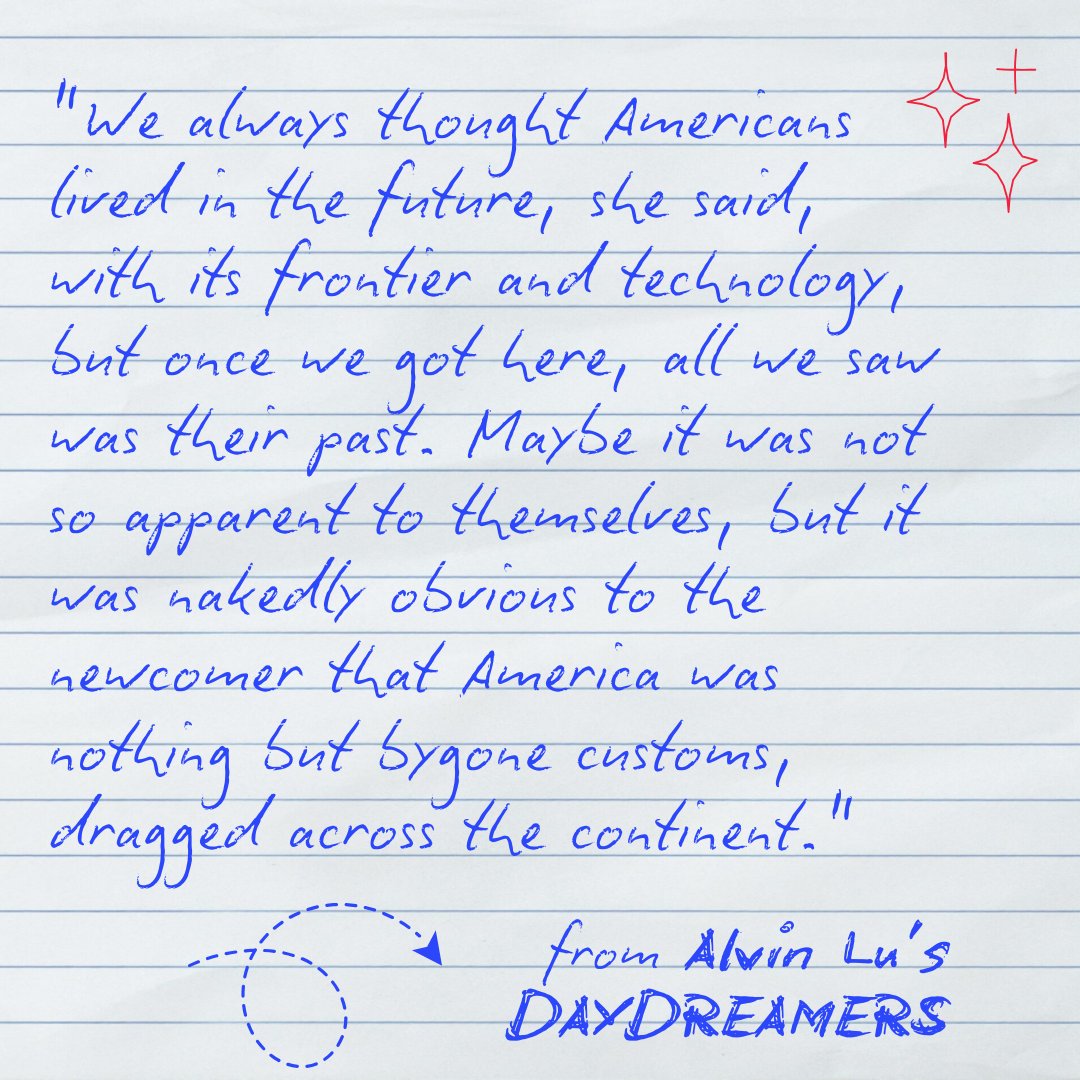 "We always thought Americans
lived in the future, she said,
with its frontier and technology,
but once we got here, all we saw
was their past. Maybe it was not
so apparent to themselves, but it
was nakedly obvious to the
newcomer that America was
nothing but bygone customs,
dragged across the continent."
from Alvin Lu's
DAYDREAMERS